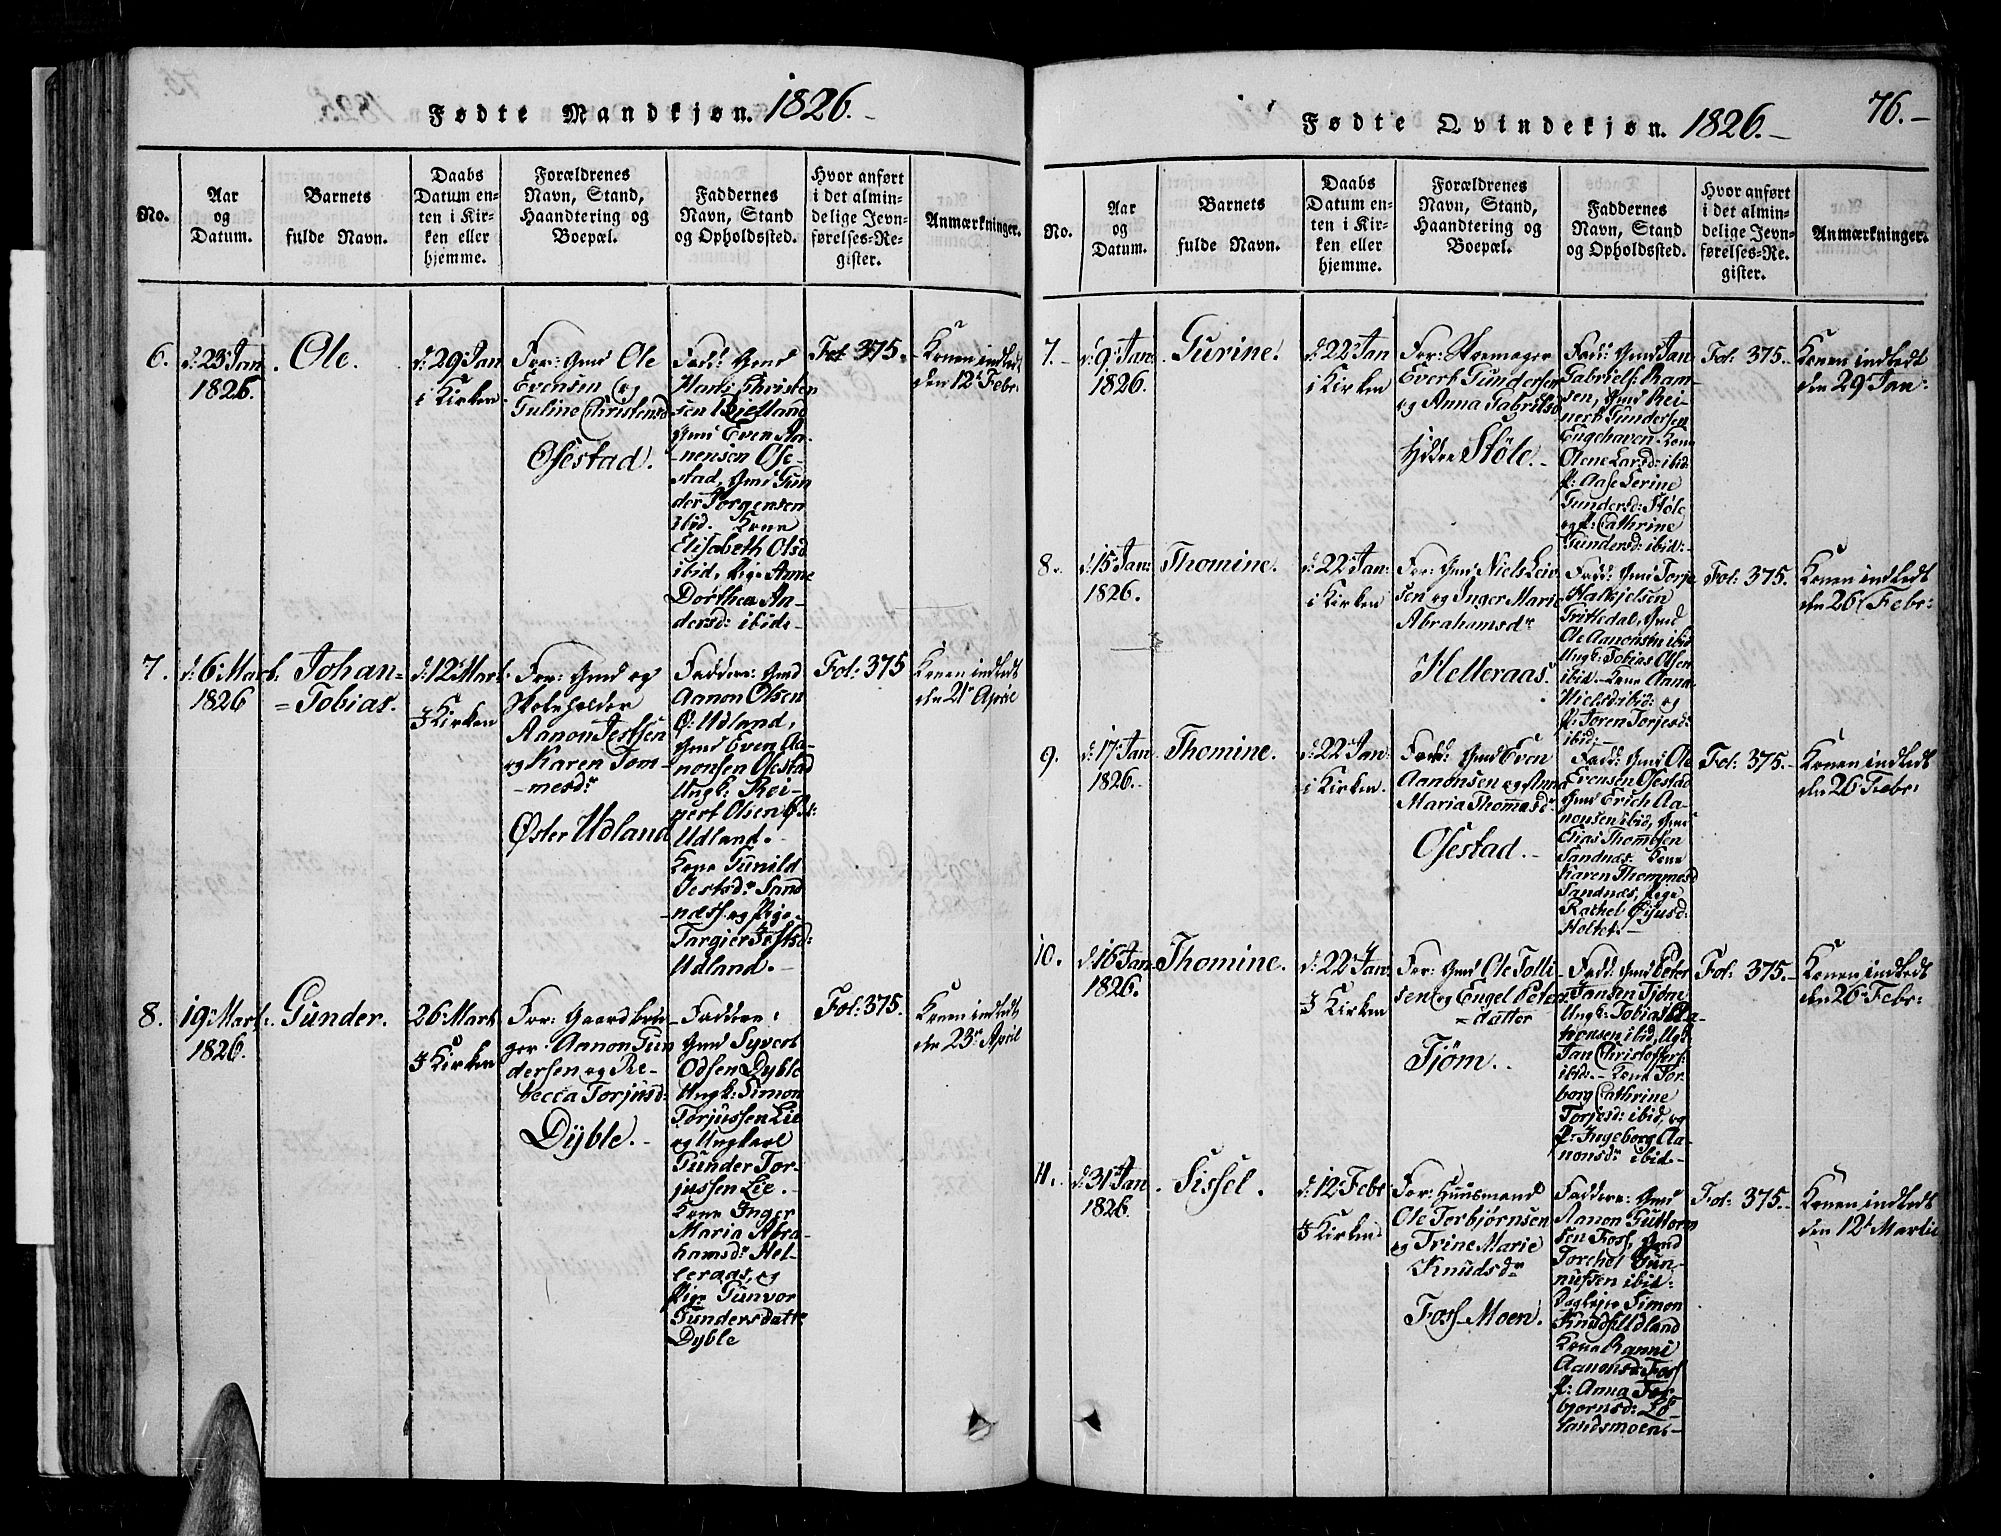 Fødte Mandkjøn. 1826.-
No.
Aar
og
Datum.
Barnets
fulde Navn.
Daabs
Datum en-
ten i Kir-
ken eller
hjemme.
Forældrenes
Navn, Stand,
Haandtering og
Boepæl.
Faddernes
Navn, Stand
og Opholdssted.
Hvor anført
i det almin-
delige Jevn-
førelses-Re-
gister.
Anmærkninger.
6.
d: 23 Jan
1826.
Ole.
d: 29 Jan
i Kirken
For: Gmd Ole
Evensen og
Guline Christensd
Osestad.
Fadd: Gmd
Hans Christen
sen Bielland
Gmd Even Aa-
nensen Ose-
stad, Gmd Gun
der Jørgensen
ibid. Kone
Elisabeth Olsd
ibid, Pige Anne
Dorthea An-
dersd: ibid-
Fol 375.
Konen indledt
den 12 Febr.
7.
d: 6 Mart.
1826
Johan=
=Tobias.
d: 12 Mart.
I Kirken
For: Gmd og
Skoleholder
Aanon Jestsen
og Karen Tom-
mesdr
Øster Udland
Faddere: Gmd
Aanon Olsen
Ø: Udland,
Gmd Even Aa-
nonsen Osestad
Ungk: Rei-
nert Olsen Øst:
Udland.
Kone Gunild
Oestsdr Sand
næss. og Pige
Targier Jestsd:
Udland.-
Fol: 375
Konen indledt
den 21 April
8.
19 Mart.
1826.
Gunder.
26 Mart
I Kirken
For: Gaardbru
ger: Aanon Gun
dersen og Re-
becca Torjusd:
Dyble.-
Faddere:
Gmd Syvert
Odsen Dyble
Ungk: Simon
Torjussen Lie
og Ungkarl
Gunder Tor-
jussen Lie.-
Kone Inger
Maria Abra
hamsdr Hel-
leraas, og
Pige Gunvor
Gundersdatte
Dyble
Fol: 375.
Konen indledt
den 23 April
76.-
Fødte Qvindekjøn. 1826.-
No.
Aar
og
Datum.
Barnets
fulde Navn.
Daabs
Datum en-
ten i Kir-
ken eller
hjemme.
Forældrenes
Navn, Stand,
Haandtering og
Boepæl.
Faddernes
Navn, Stand
og Opholdssted.
Hvor anført
i det almin-
delige Jevn-
førelses-Re-
gister.
Anmærkninger.
7.
d: 9 Jan:
1826.
Gurine.
d: 22 Jan
i Kirken
For: Skomager
Evert Gundersen
og Anna Gabrilsd
Hidre Støle.-
Fadd: Gmd Jan
Gabriels: Ram-
sen, Gmd Rei-
nert Gundersen
Engehaven Kone
Olene Larsd: ibid
P: Aase Serine
Gundersd: Støle
og P: Cathrine
Gundersd: ibid:-
Fol: 375.-
Konen indledt
den 29 Jan:
8.
d: 15 Jan:
1826.
Thomine.
d: 22 Jan:
i Kirken
For: Gmd Niels Leiv
sen og Inger Marie
Abrahamsdr
Helleraas.
Fadd: Gmd Torje
Halkjelsen
Trittedal, Gmd
Ole Aanonsen ibid
Ungk: Tobias Olsen
ibid.- Kone Anna
Nielsd: ibid: og
P: Joren Torjesd:
ibid:-
Fol: 375.-
Konen indledt
den 26 Febr:
9.
d: 17 Jan
1826.
Thomine.
d: 22 Jan:
i Kirken.
Fadd: Gmd Even
Aanonsen og Anna
Maria Thomasdr
Osestad.-
Fadd: Gmd Ole
Evensen Osestad
Gmd Erich Aa-
nonsen ibid, Gmd
Elias Thommesen
Sandnæs. Kone
Karen Thommesd
Sandnæs, Pige
Rachel Ojusd:
Holtet.-
Fol: 375.-
Konen indledt
den 26 Febr:
10.
d: 16 Jan
1826.
Thomine.
d: 22 Jan
I Kirken
For: Gmd Ole Tolli
sen og Engel Peters
=datter
Tjøm..
Fadd: Gmd Peter
Jansen Tjøm
Ungk: Tobias Aa-
nonsen ibid, Ugk
Jan Christoffers:
ibid:- Kone Tor-
borg Cathrine
Torjesd: ibid, og
P: Ingeborg Aa-
nonsdr ibid.-
Fol: 375.-
Konen indledt
den 26 Febr:
11.
d: 31 Jan
1826.
Sissel.
d: 12 Febr
I Kirken
For: Huusmand
Ole Terbjørnsen
og Trine Marie
Knudsdr
Foss-Moen.
Faddere: Gmd
Aanon Guttorm
sen Foss, Gmd
Torchel Gun-
nufsen ibid:
Simon
Knuds: Udland
Kone Ranni
Aanonsd: Foss
P: Anna Tor-
bjørnsd: Lø-
landsmoen-
Fol: 375.-
Konen indledt
den 12 Martii